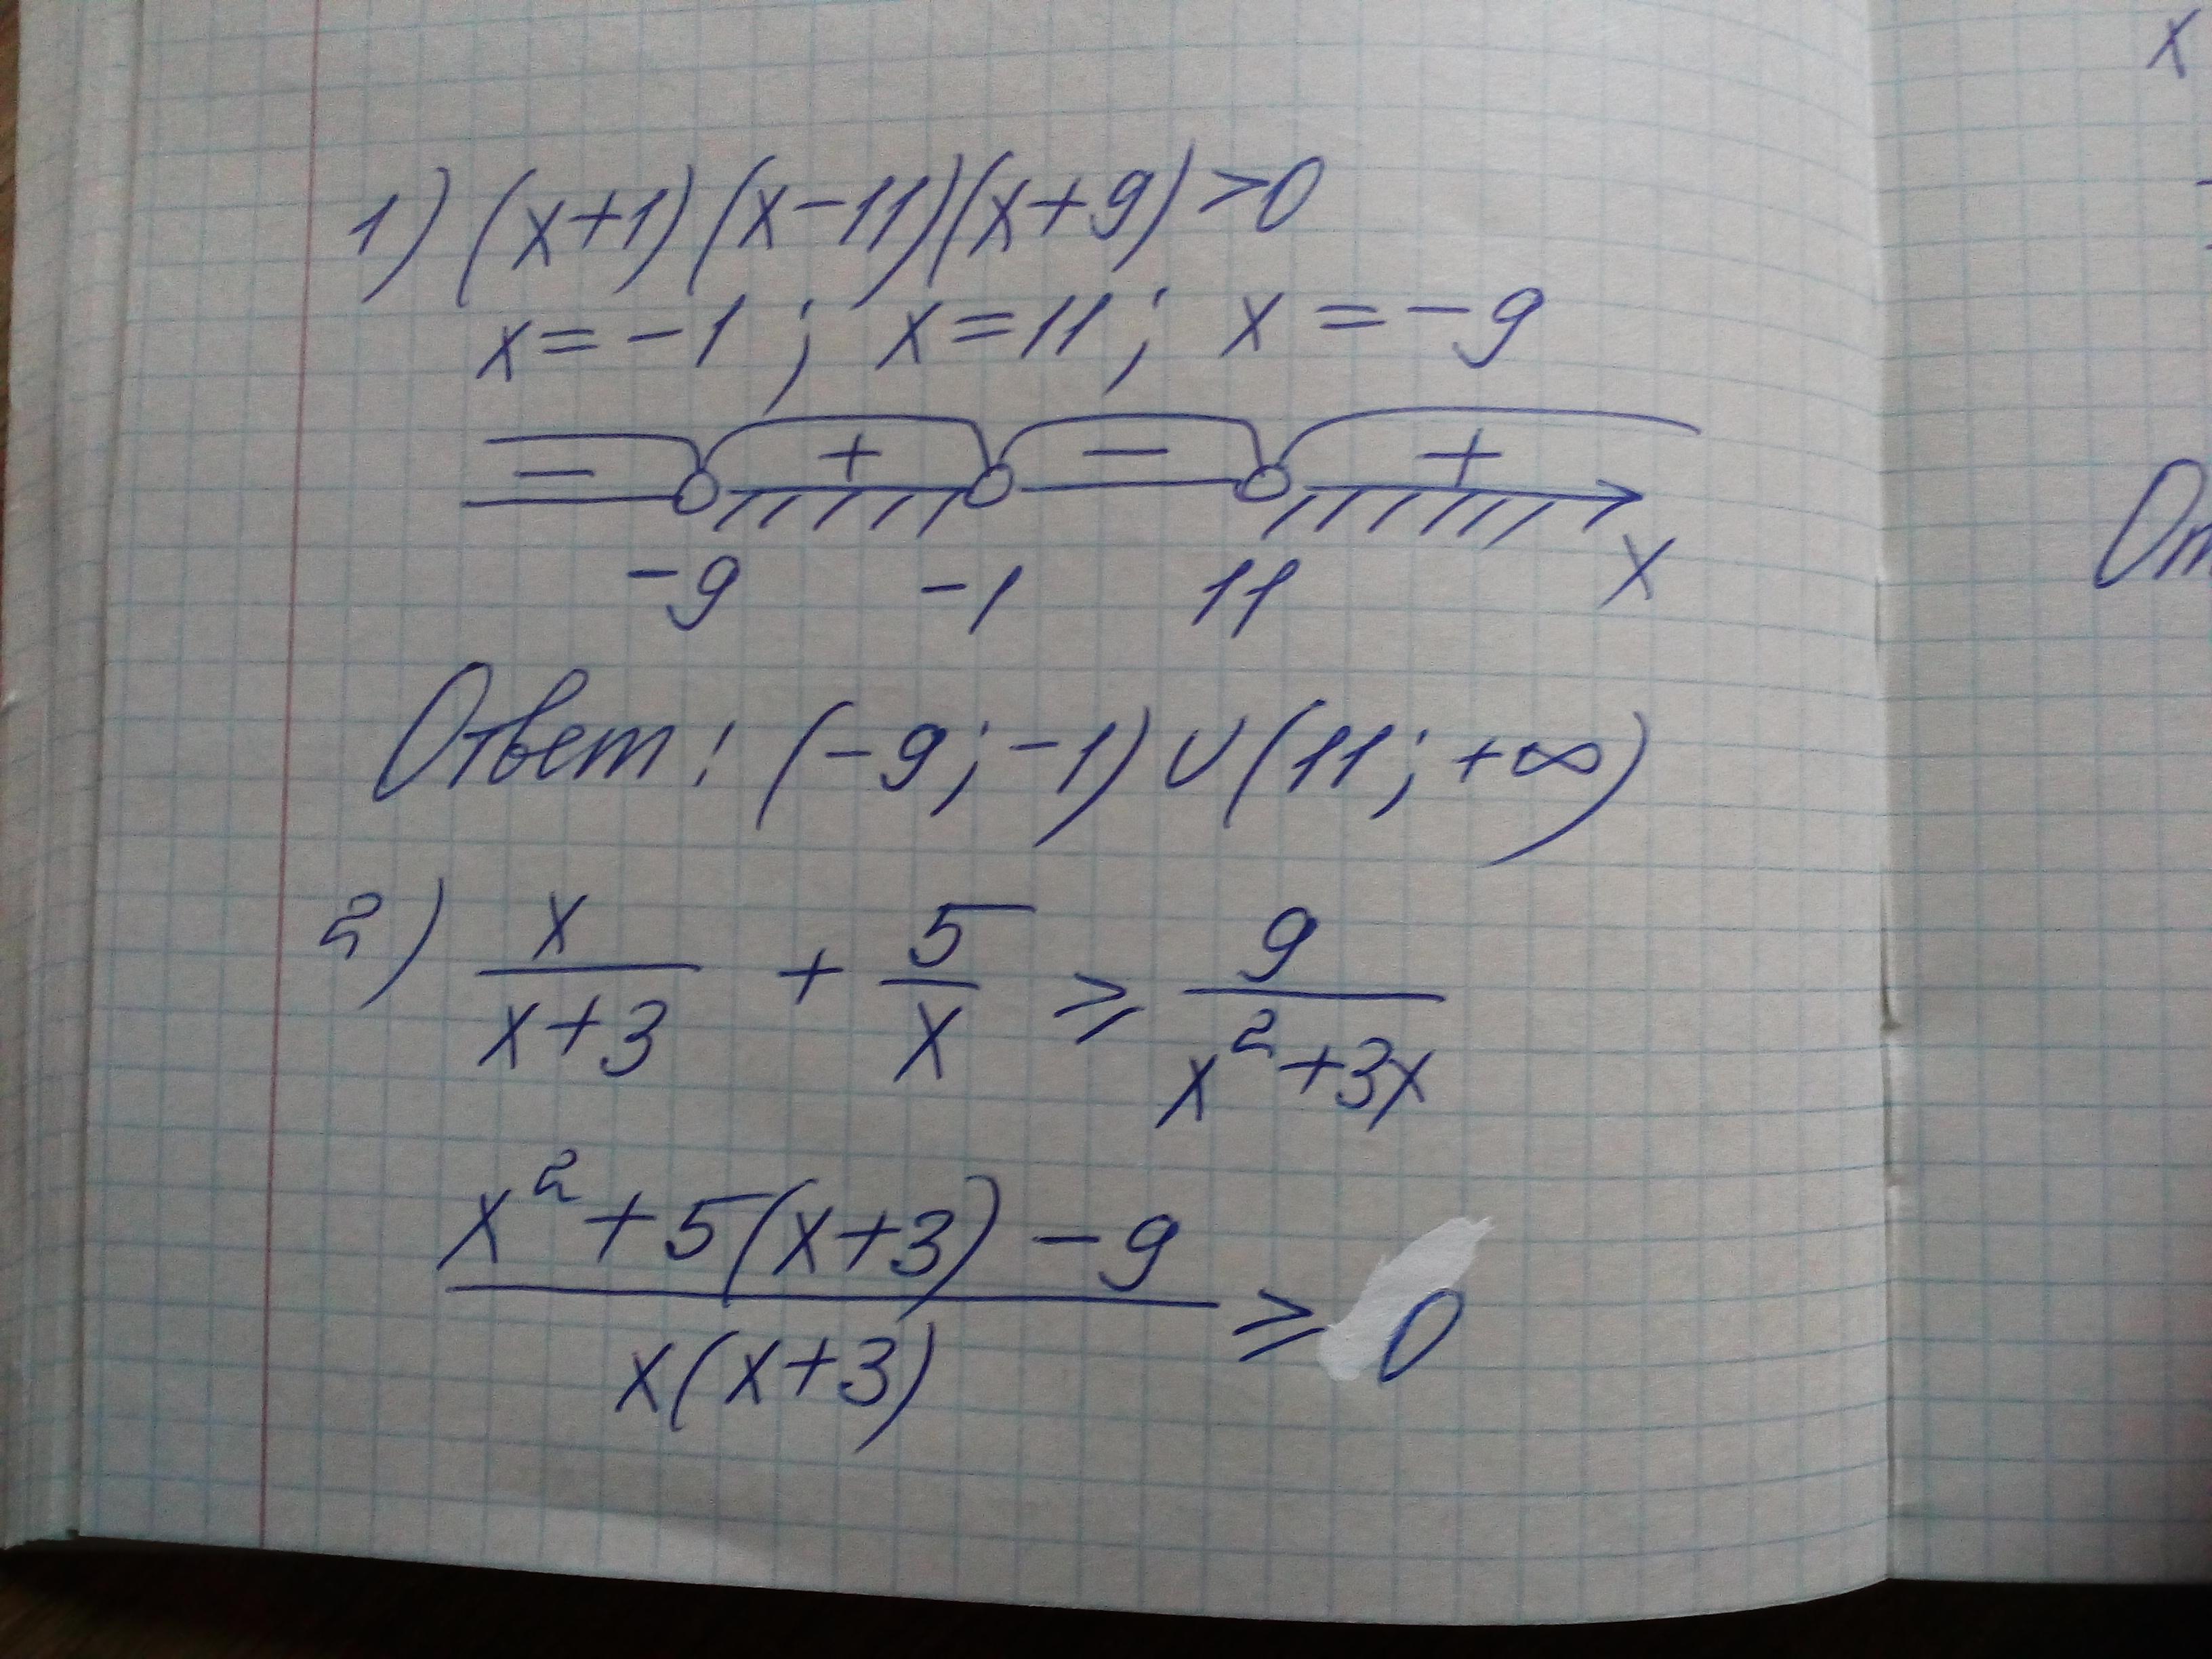 1) (x+1)(x-11)(x+9)>0
x=-1; x=11; x=-9
- + - +
-9 -1 11 x
Ответ: (-9; -1) ∪ (11; +∞)
2) x/(x+3) + 5/x ≥ 9/(x²+3x)
(x²+5(x+3)-9)/(x(x+3)) ≥ 0
x
От